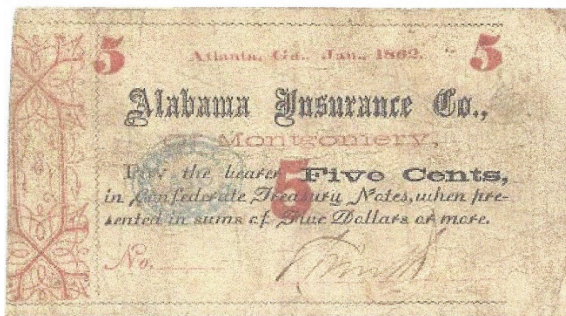 5 Atlanta, Ga., Jan., 1862. 5
Alabama Insurance Co.,
Of Montgomery,
Pay the bearer Five Cents,
5
in Confederate Treasury Notes, when pre-
sented in sums of Five Dollars or more.
No.